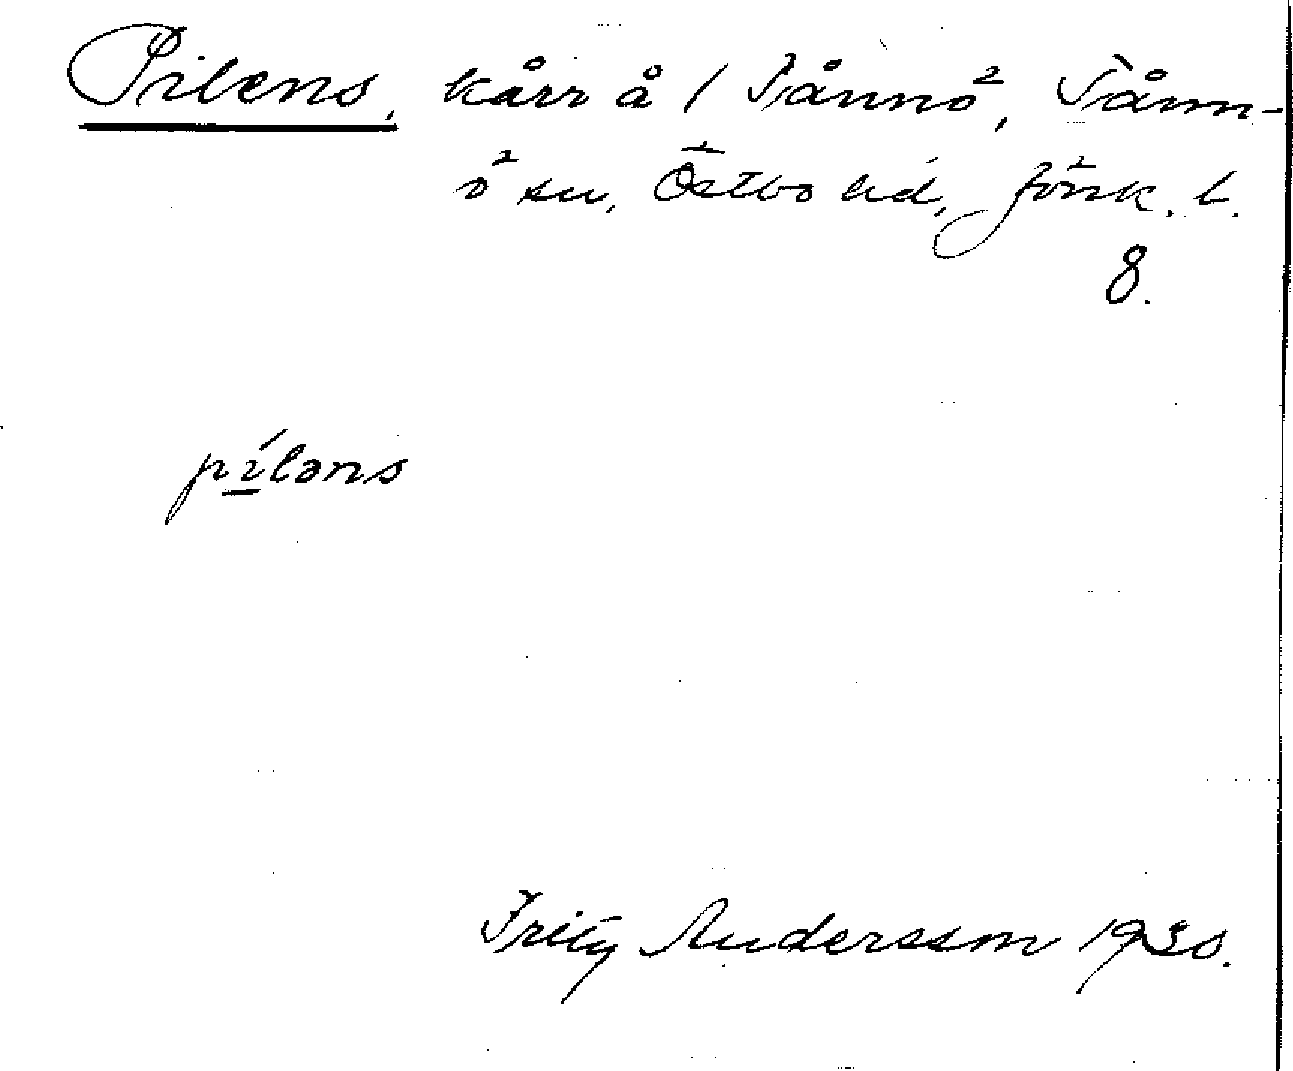 Pilens, kärr å / Tånnö, Tånn-
ö sn, Östbo hd, Jönk. l.
8.
píləns
Fritz Andersson 1930.